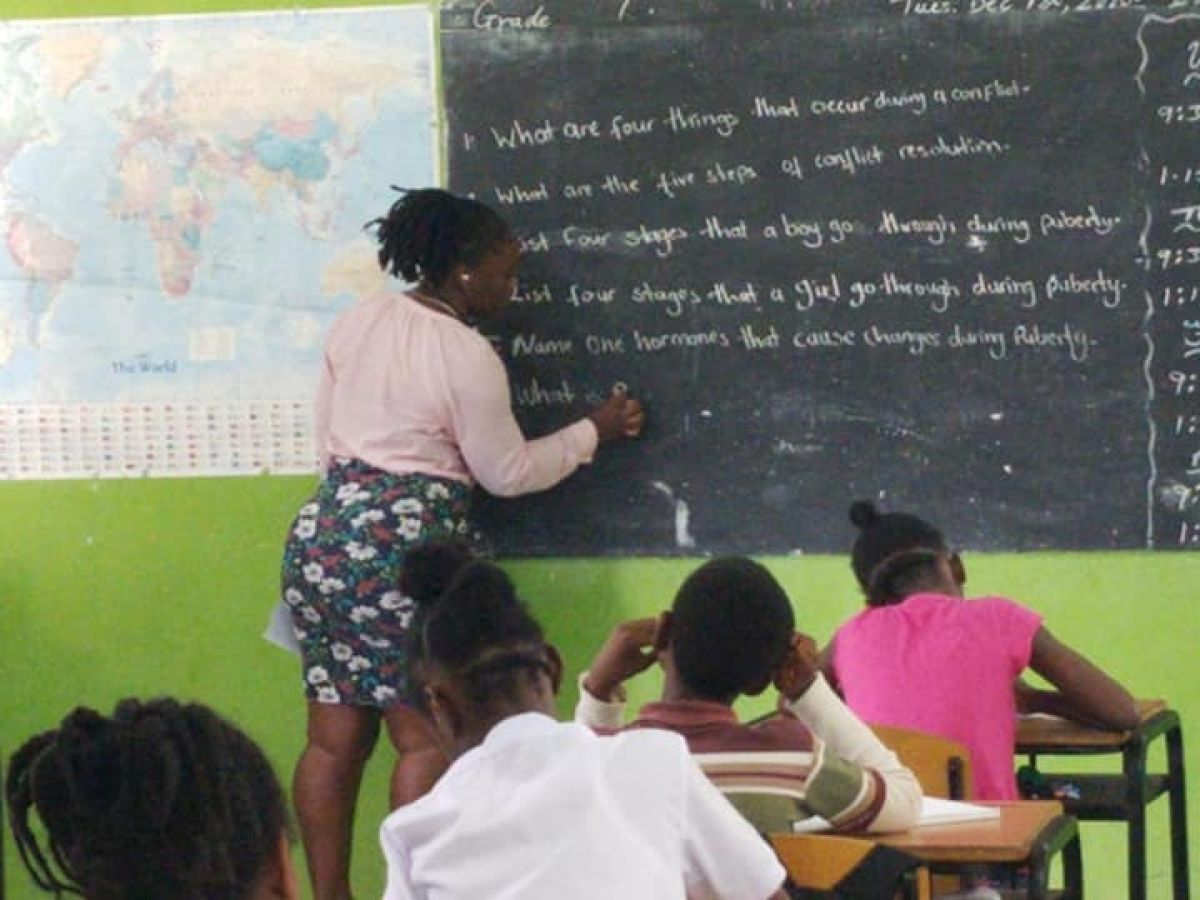 Grade 7.
Tues. Dec 1st, 2020.
1. What are four things that occur during a conflict.
What are the five steps of conflict resolution.
List four stages that a boy go through during puberty.
List four stages that a girl go through during puberty.
Name One hormones that cause changes during Puberty.
What
9:3
1:1
9:3
1:1
9:
1:
9:
1:
The World